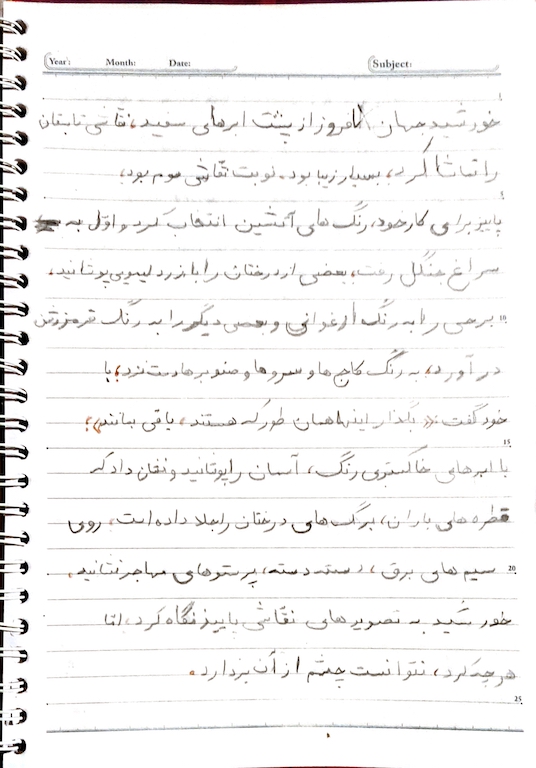 Year: Month: Date: Subject:
خورشید جهان افروز از پشت ابرهای سفید، نقاشی تابستان
را تماشا کرد، بسیار زیبا بود. نوبت نقاش سوم بود،
پاییز برای کار خود، رنگ های آتشین انتخاب کرد و اول به
سراغ جنگل رفت، بعضی از درختان را با زرد لیمویی پوشانید،
برخی را به رنگ ارغوانی و بعضی دیگر را به رنگ قرمز روشن
در آورد، به رنگ کاج ها و سروها و صنوبرها دست نزد، با
خود گفت: «بگذار اینها همان طور که هستند، باقی بمانند»؛
با ابرهای خاکستری رنگ، آسمان را پوشانید و نشان داد که
قطره های باران، برگ های درختان را جلا داده است، روی
سیم های برق، دسته دسته، پرستوهای مهاجر نشانید.
خورشید به تصویرهای نقاشی پاییز نگاه کرد، امّا
هرچه کرد، نتوانست چشم از آن بردارد.